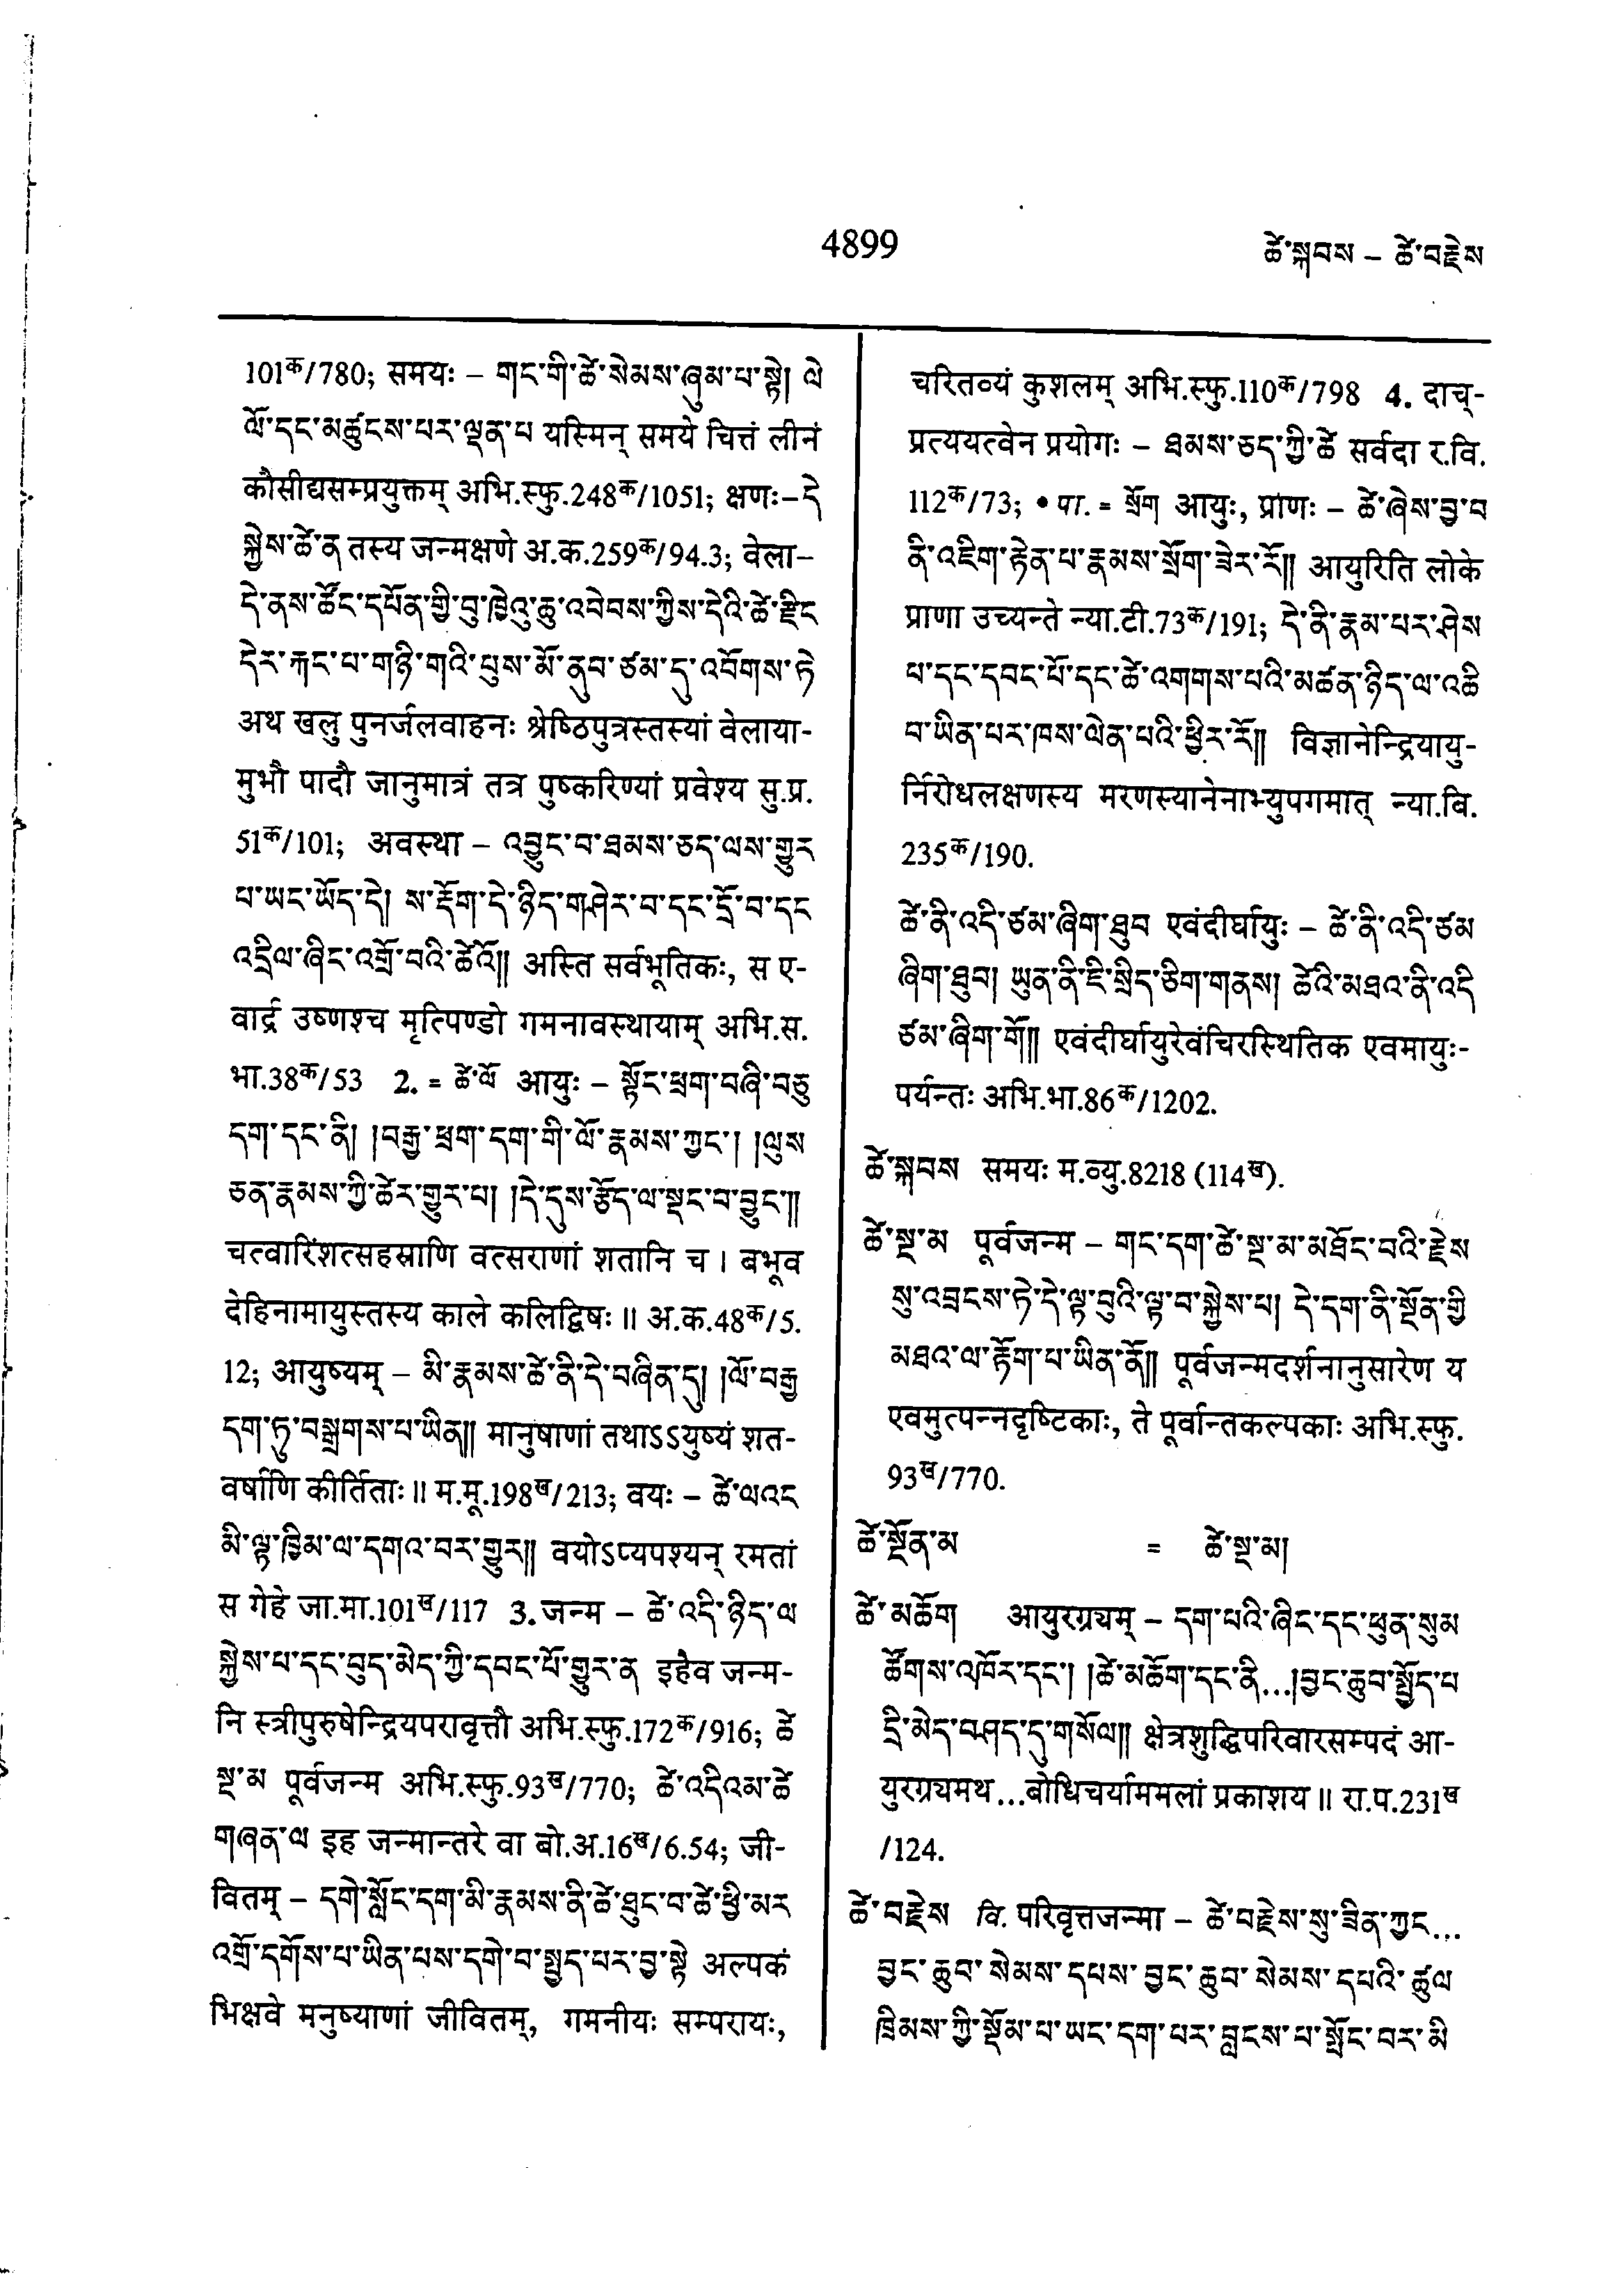 4899
ཚེ་སྐབས – ཚེ་བརྗེས
101क/780; समयः – གང་གི་ཚེ་སེམས་ཞུམ་པ་སྟེ། ལེ
ལོ་དང་མཚུངས་པར་ལྡན་པ यस्मिन् समये चित्तं लीनं
कौसीद्यसम्प्रयुक्तम् अभि.स्फु.248क/1051; क्षणः – དེ
སྐྱེས་ཚེ་ན तस्य जन्मक्षणे अ.क.259क/94.3; वेला –
དེ་ནས་ཚོང་དཔོན་གྱི་བུ་ཁྱེའུ་ཆུ་འབེབས་ཀྱིས་དེའི་ཚེ་རྫིང
དེར་རྐང་པ་གཉི་གའི་པུས་མོ་ནུབ་ཙམ་དུ་འབོགས་ཏེ
अथ खलु पुनर्जलवाहनः श्रेष्ठिपुत्रस्तस्यां वेलाया-
मुभौ पादौ जानुमात्रं तत्र पुष्करिण्यां प्रवेश्य सु.प्र.
51क/101; अवस्था – འབྱུང་བ་ཐམས་ཅད་ལས་གྱུར
པ་ཡང་ཡོད་དེ། ས་རྡོག་དེ་ཉིད་གཤེར་བ་དང་དྲོ་བ་དང
འདྲིལ་ཞིང་འགྲོ་བའི་ཚེའོ།། अस्ति सर्वभूतिकः, स ए-
वार्द्र उष्णश्च मृत्पिण्डो गमनावस्थायाम् अभि.स.
भा.38क/53 2. = ཚེ་ལོ आयुः – སྟོང་ཕྲག་བཞི་བཅུ
དག་དང་ནི། །བརྒྱ་ཕྲག་དག་གི་ལོ་རྣམས་ཀྱང་། །ལུས
ཅན་རྣམས་ཀྱི་ཚེར་གྱུར་པ། །དེ་དུས་རྩོད་ལ་སྡང་བ་བྱུང་།།
चत्वारिंशत्सहस्राणि वत्सराणां शतानि च । बभूव
देहिनामायुस्तस्य काले कलिद्विषः ॥ अ.क.48क/5.
12; आयुष्यम् – མི་རྣམས་ཚེ་ནི་དེ་བཞིན་དུ། །ལོ་བརྒྱ
དག་ཏུ་བསྒྲགས་པ་ཡིན།། मानुषाणां तथाऽऽयुष्यं शत-
वर्षाणि कीर्तिताः ॥ म.मू.198ख/213; वयः – ཚེ་ལའང
མི་ལྟ་ཁྱིམ་ལ་དགའ་བར་གྱུར།། वयोऽप्यपश्यन् रमतां
स गेहे जा.मा.101ख/117 3. जन्म – ཚེ་འདི་ཉིད་ལ
སྐྱེས་པ་དང་བུད་མེད་ཀྱི་དབང་པོ་གྱུར་ན इहैव जन्म-
नि स्त्रीपुरुषेन्द्रियपरावृत्तौ अभि.स्फु.172क/916; ཚེ
སྔ་མ पूर्वजन्म अभि.स्फु.93ख/770; ཚེ་འདིའམ་ཚེ
གཞན་ལ इह जन्मान्तरे वा बो.अ.16ख/6.54; जी-
वितम् – དགེ་སློང་དག་མི་རྣམས་ནི་ཚེ་ཐུང་བ་ཚེ་ཕྱི་མར
འགྲོ་དགོས་པ་ཡིན་པས་དགེ་བ་སྤྱད་པར་བྱ་སྟེ अल्पकं
भिक्षवे मनुष्याणां जीवितम्, गमनीयः सम्परायः,
चरितव्यं कुशलम् अभि.स्फु.110क/798 4. दाच्-
प्रत्ययत्वेन प्रयोगः – ཐམས་ཅད་ཀྱི་ཚེ सर्वदा र.वि.
112क/73; • पा. = སྲོག आयुः, प्राणः – ཚེ་ཞེས་བྱ་བ
ནི་འཇིག་རྟེན་པ་རྣམས་སྲོག་ཟེར་རོ།། आयुरिति लोके
प्राणा उच्यन्ते न्या.टी.73क/191; དེ་ནི་རྣམ་པར་ཤེས
པ་དང་དབང་པོ་དང་ཚེ་འགགས་པའི་མཚན་ཉིད་ལ་འཆི
བ་ཡིན་པར་ཁས་ལེན་པའི་ཕྱིར་རོ།། विज्ञानेन्द्रियायु-
र्निरोधलक्षणस्य मरणस्यानेनाभ्युपगमात् न्या.बि.
235क/190.
ཚེ་ནི་འདི་ཙམ་ཞིག་ཐུབ एवंदीर्घायुः – ཚེ་ནི་འདི་ཙམ
ཞིག་ཐུབ། ཡུན་ནི་ཇི་སྲིད་ཅིག་གནས། ཚེའི་མཐའ་ནི་འདི
ཙམ་ཞིག་གོ།། एवंदीर्घायुरेवंचिरस्थितिक एवमायुः-
पर्यन्तः अभि.भा.86क/1202.
ཚེ་སྐབས समयः म.व्यु.8218 (114ख).
ཚེ་སྔ་མ पूर्वजन्म – གང་དག་ཚེ་སྔ་མ་མཐོང་བའི་རྗེས
སུ་འབྲངས་ཏེ་དེ་ལྟ་བུའི་ལྟ་བ་སྐྱེས་པ། དེ་དག་ནི་སྔོན་གྱི
མཐའ་ལ་རྟོག་པ་ཡིན་ནོ།། पूर्वजन्मदर्शनानुसारेण य
एवमुत्पन्नदृष्टिकाः, ते पूर्वान्तकल्पकाः अभि.स्फु.
93ख/770.
ཚེ་སྔོན་མ = ཚེ་སྔ་མ།
ཚེ་མཆོག आयुरग्र्यम् – དག་པའི་ཞིང་དང་ཕུན་སུམ
ཚོགས་འཁོར་དང་། །ཚེ་མཆོག་དང་ནི...།བྱང་ཆུབ་སྤྱོད་པ
དྲི་མེད་བཤད་དུ་གསོལ།། क्षेत्रशुद्धिपरिवारसम्पदं आ-
युरग्र्यमथ...बोधिचर्याममलां प्रकाशय ॥ रा.प.231ख
/124.
ཚེ་བརྗེས वि. परिवृत्तजन्मा – ཚེ་བརྗེས་སུ་ཟིན་ཀྱང...
བྱང་ཆུབ་སེམས་དཔས་བྱང་ཆུབ་སེམས་དཔའི་ཚུལ
ཁྲིམས་ཀྱི་སྡོམ་པ་ཡང་དག་པར་བླངས་པ་སྤོང་བར་མི